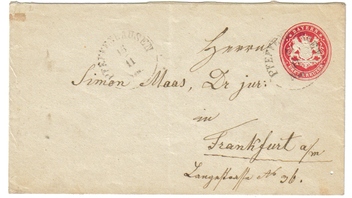 Herrn
Simon Maas, Dr jur:
in
Frankfurt a/m
Langestrasse No 36.
16
11